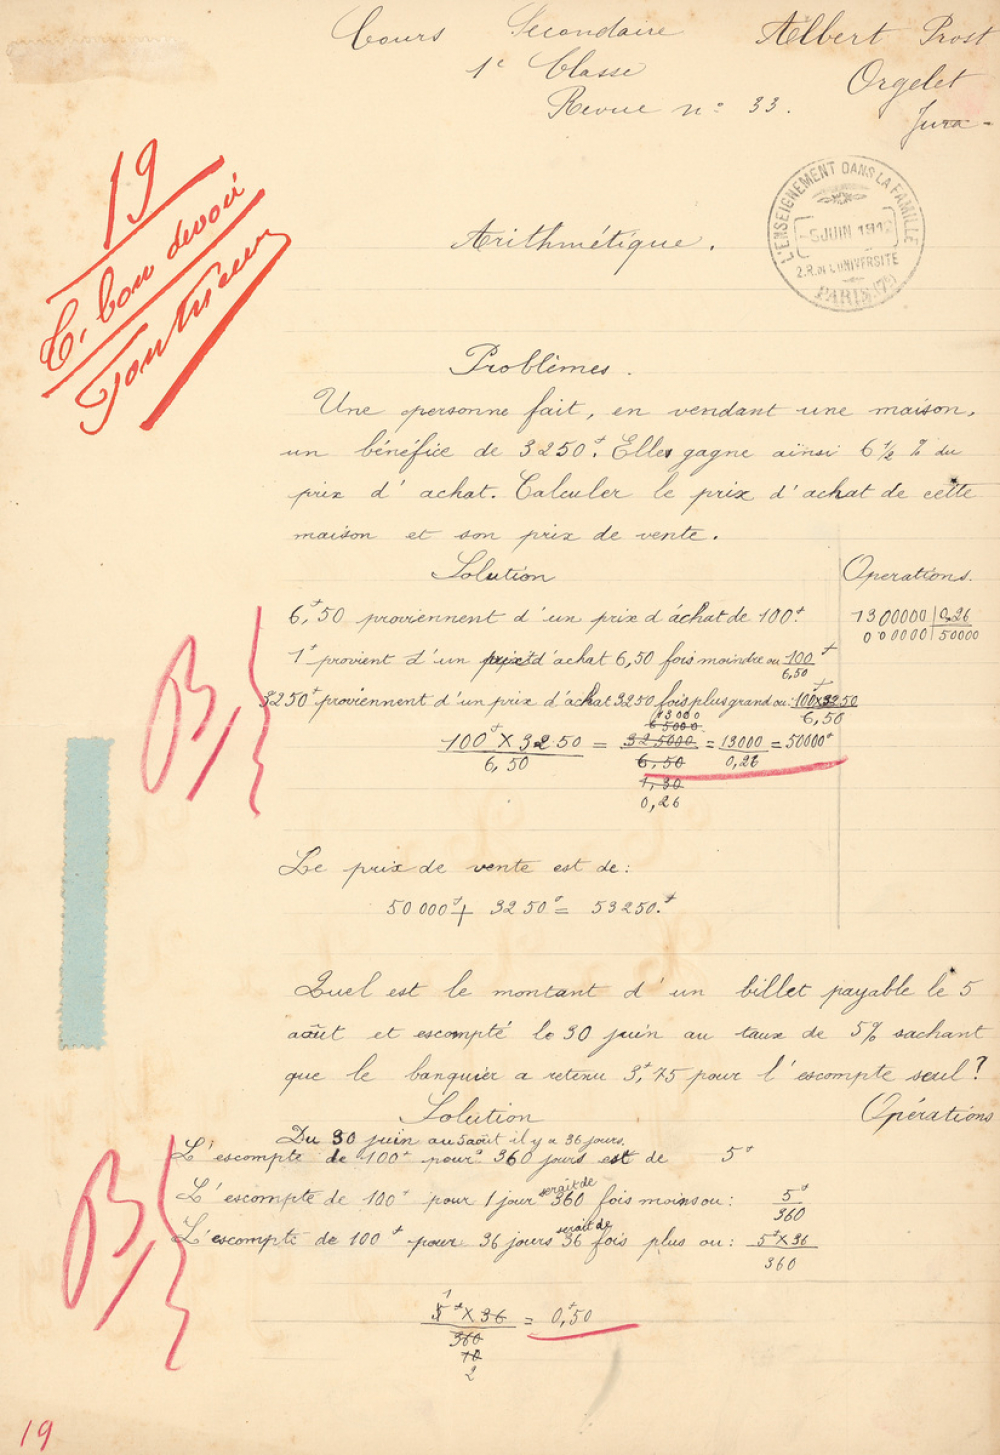 Cours Secondaire
Albert Prost
1e Classe
Orgelet
Revue n° 33.
Jura -
19
T. bon devoir
L'ENSEIGNEMENT DANS LA FAMILLE
-6 JUIN 1912
2. R. DE L'UNIVERSITÉ
PARIS (7e)
Arithmétique.
Problèmes.
Une personne fait, en vendant une maison,
un bénéfice de 3250f. Elle gagne ainsi 6 1/2 % du
prix d'achat. Calculer le prix d'achat de cette
maison et son prix de vente.
Solution
Operations.
6,f50 proviennent d'un prix d'achat de 100f.
1300000 | 0,26
000000 | 50000
1f provient d'un prix d'achat 6,50 fois moindre ou 100f/6,50
3250f proviennent d'un prix d'achat 3250 fois plus grand ou: 100f×3250/6,50
13000
65000
100f × 3250 / 6,50 = 325000 / 6,50 = 13000 / 0,26 = 50000f
1,30
0,26
B
Le prix de vente est de:
50000f + 3250f = 53250.f
Quel est le montant d'un billet payable le 5
août et escompté le 30 juin au taux de 5% sachant
que le banquier a retenu 3,f75 pour l'escompte seul?
Solution
Opérations
Du 30 juin au 5 août il y a 36 jours.
L'escompte de 100f pour 360 jours est de 5f
L'escompte de 100f pour 1 jour serait de 360 fois moins ou: 5f/360
L'escompte de 100f pour 36 jours serait de 36 fois plus ou: 5f×36/360
B
1
5f × 36 / 360 = 0,f50
10
2
19